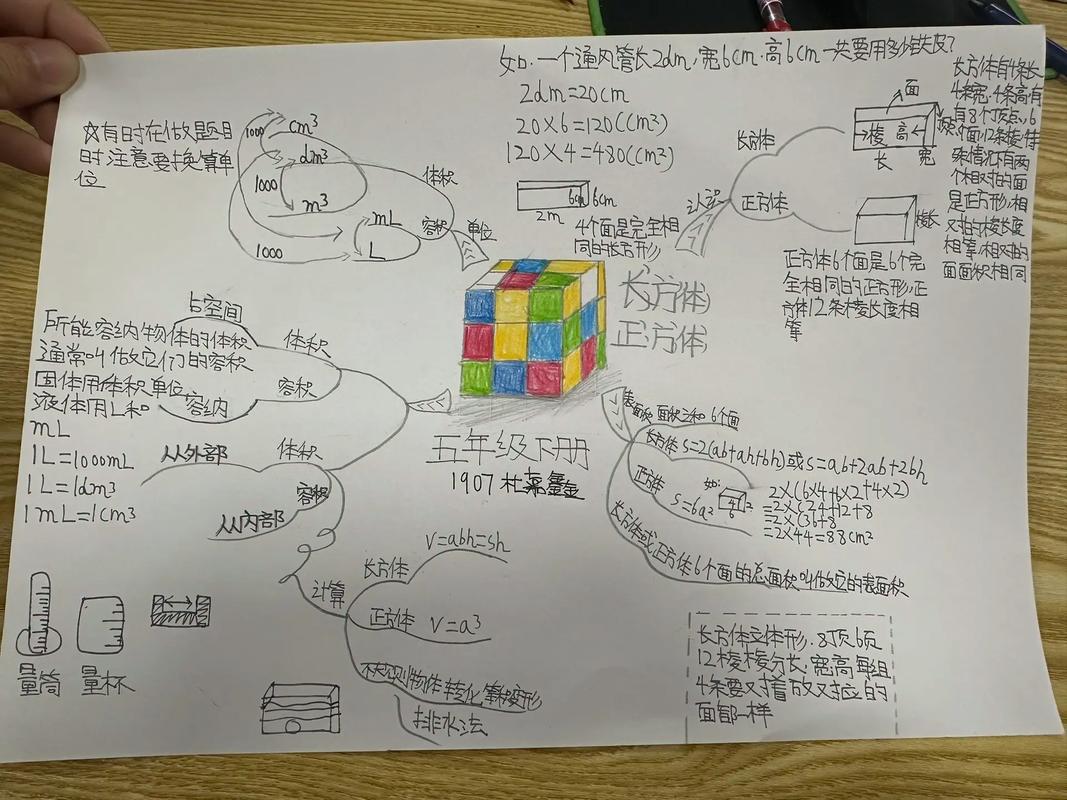 如:一个通风管长2dm,宽6cm.高6cm一共要用多少铁皮?
2dm=20cm
20×6=120(cm²)
120×4=480(cm²)
6cm
6cm
2m
4个面是完全相
同的长方形
☆有时在做题目
时注意要换算单
位
1000
cm³
dm³
1000
m³
mL
1000
L
体积
容积
单位
认识
长方体
正方体
面
棱
高
顶点
长
宽
棱长
长方体有4条长
4条宽.4条高.有
有8个顶点,6
个面12条棱,特
殊情况有两
个相对的面
是正方形,相
对的棱长度
相等,相对的
面面积相同
正方体6个面是6个完
全相同的正方形,正
方体12条棱长度相
等
长方体
正方体
五年级下册
1907
占空间
所能容纳物体的体积
通常叫做它们的容积
固体用体积单位
液体用L和
mL
1L=1000mL
1L=1dm³
1mL=1cm³
体积
容积
容纳
从外部
体积
容积
从内部
计算
长方体
V=abh=sh
正方体
V=a³
不规则物体 转化 等积变形
排水法
量筒
量杯
表面积
面积之和
6个面
长方体 S=2(ab+ah+bh)或S=ab+2ab+2bh
正方体 S=6a²
如:
2×(6×4+6×2+4×2)
=2×(24+12+8
=2×(36+8
=2×44=88cm²
长方体或正方体6个面的总面积叫做它的表面积
长方体立体形.8顶6面
12棱棱分长.宽高每组
4条要对着放对应的
面都一样